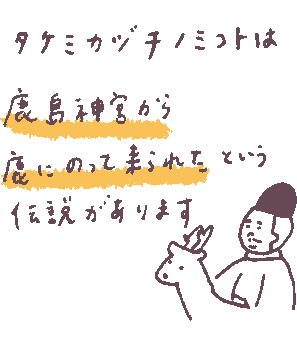 タケミカヅチノミコトは
鹿島神宮から
鹿にのって来られたという
伝説があります